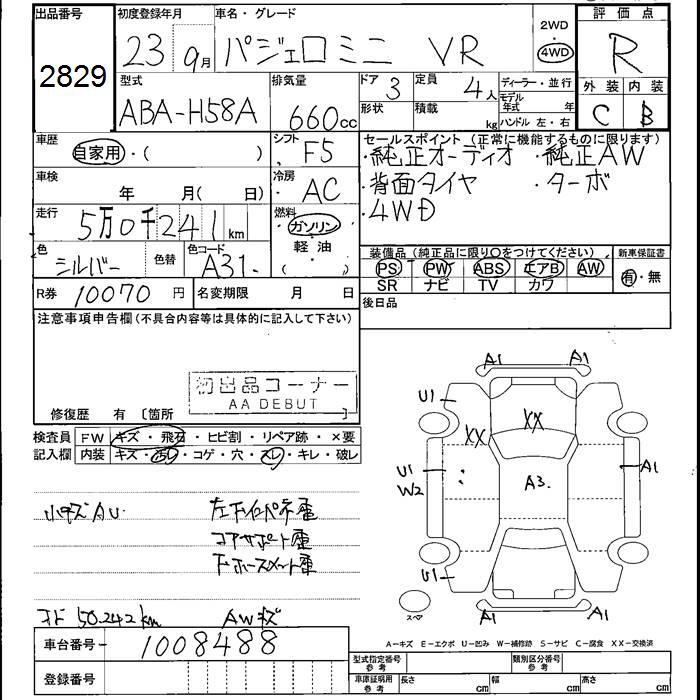 出品番号 初度登録年月 車名・グレード 2WD 評価点
2829 23 9月 パジェロミニ VR 4WD R
型式 排気量 ドア 3 定員 4人 ディーラー・並行 外装 内装
ABA-H58A 660cc 形状 積載 kg モデル年式 年 C B
ハンドル 左・右
車歴 シフト セールスポイント(正常に機能するものに限ります)
自家用・( ) F5 ・純正オーディオ ・純正AW
車検 年 月( 日) 冷房 AC ・背面タイヤ ・ターボ
走行 5万0千241km 燃料 ガソリン ・4WD
軽油
( )
色 シルバー 色替 色コード A31. 装備品(純正品に限り○をつけてください) 新車保証書
PS PW ABS エアB AW 有・無
SR ナビ TV カワ
R券 10070円 名変期限 月 日 後日品
注意事項申告欄(不具合内容等は具体的に記入して下さい)
初出品コーナー
AA DEBUT
修復歴 有 [箇所 ]
検査員 FW キズ・飛石・ヒビ割・リペア跡・×要
記入欄 内装 キズ・汚レ・コゲ・穴・スレ・キレ・破レ
A1 A1
U1
XX XX
U1 A3. A1
W2
U1
スペア A1 A1
小キズAU
コアサポート歪
50.242km AWキズ
A-キズ E-エクボ U-凹み W-補修跡 S-サビ C-腐食 XX-交換済
車台番号 - 1008488
登録番号
型式指定番号 参考 類別区分番号 参考
車庫証明用 参考 長さ cm 幅 cm 高さ cm